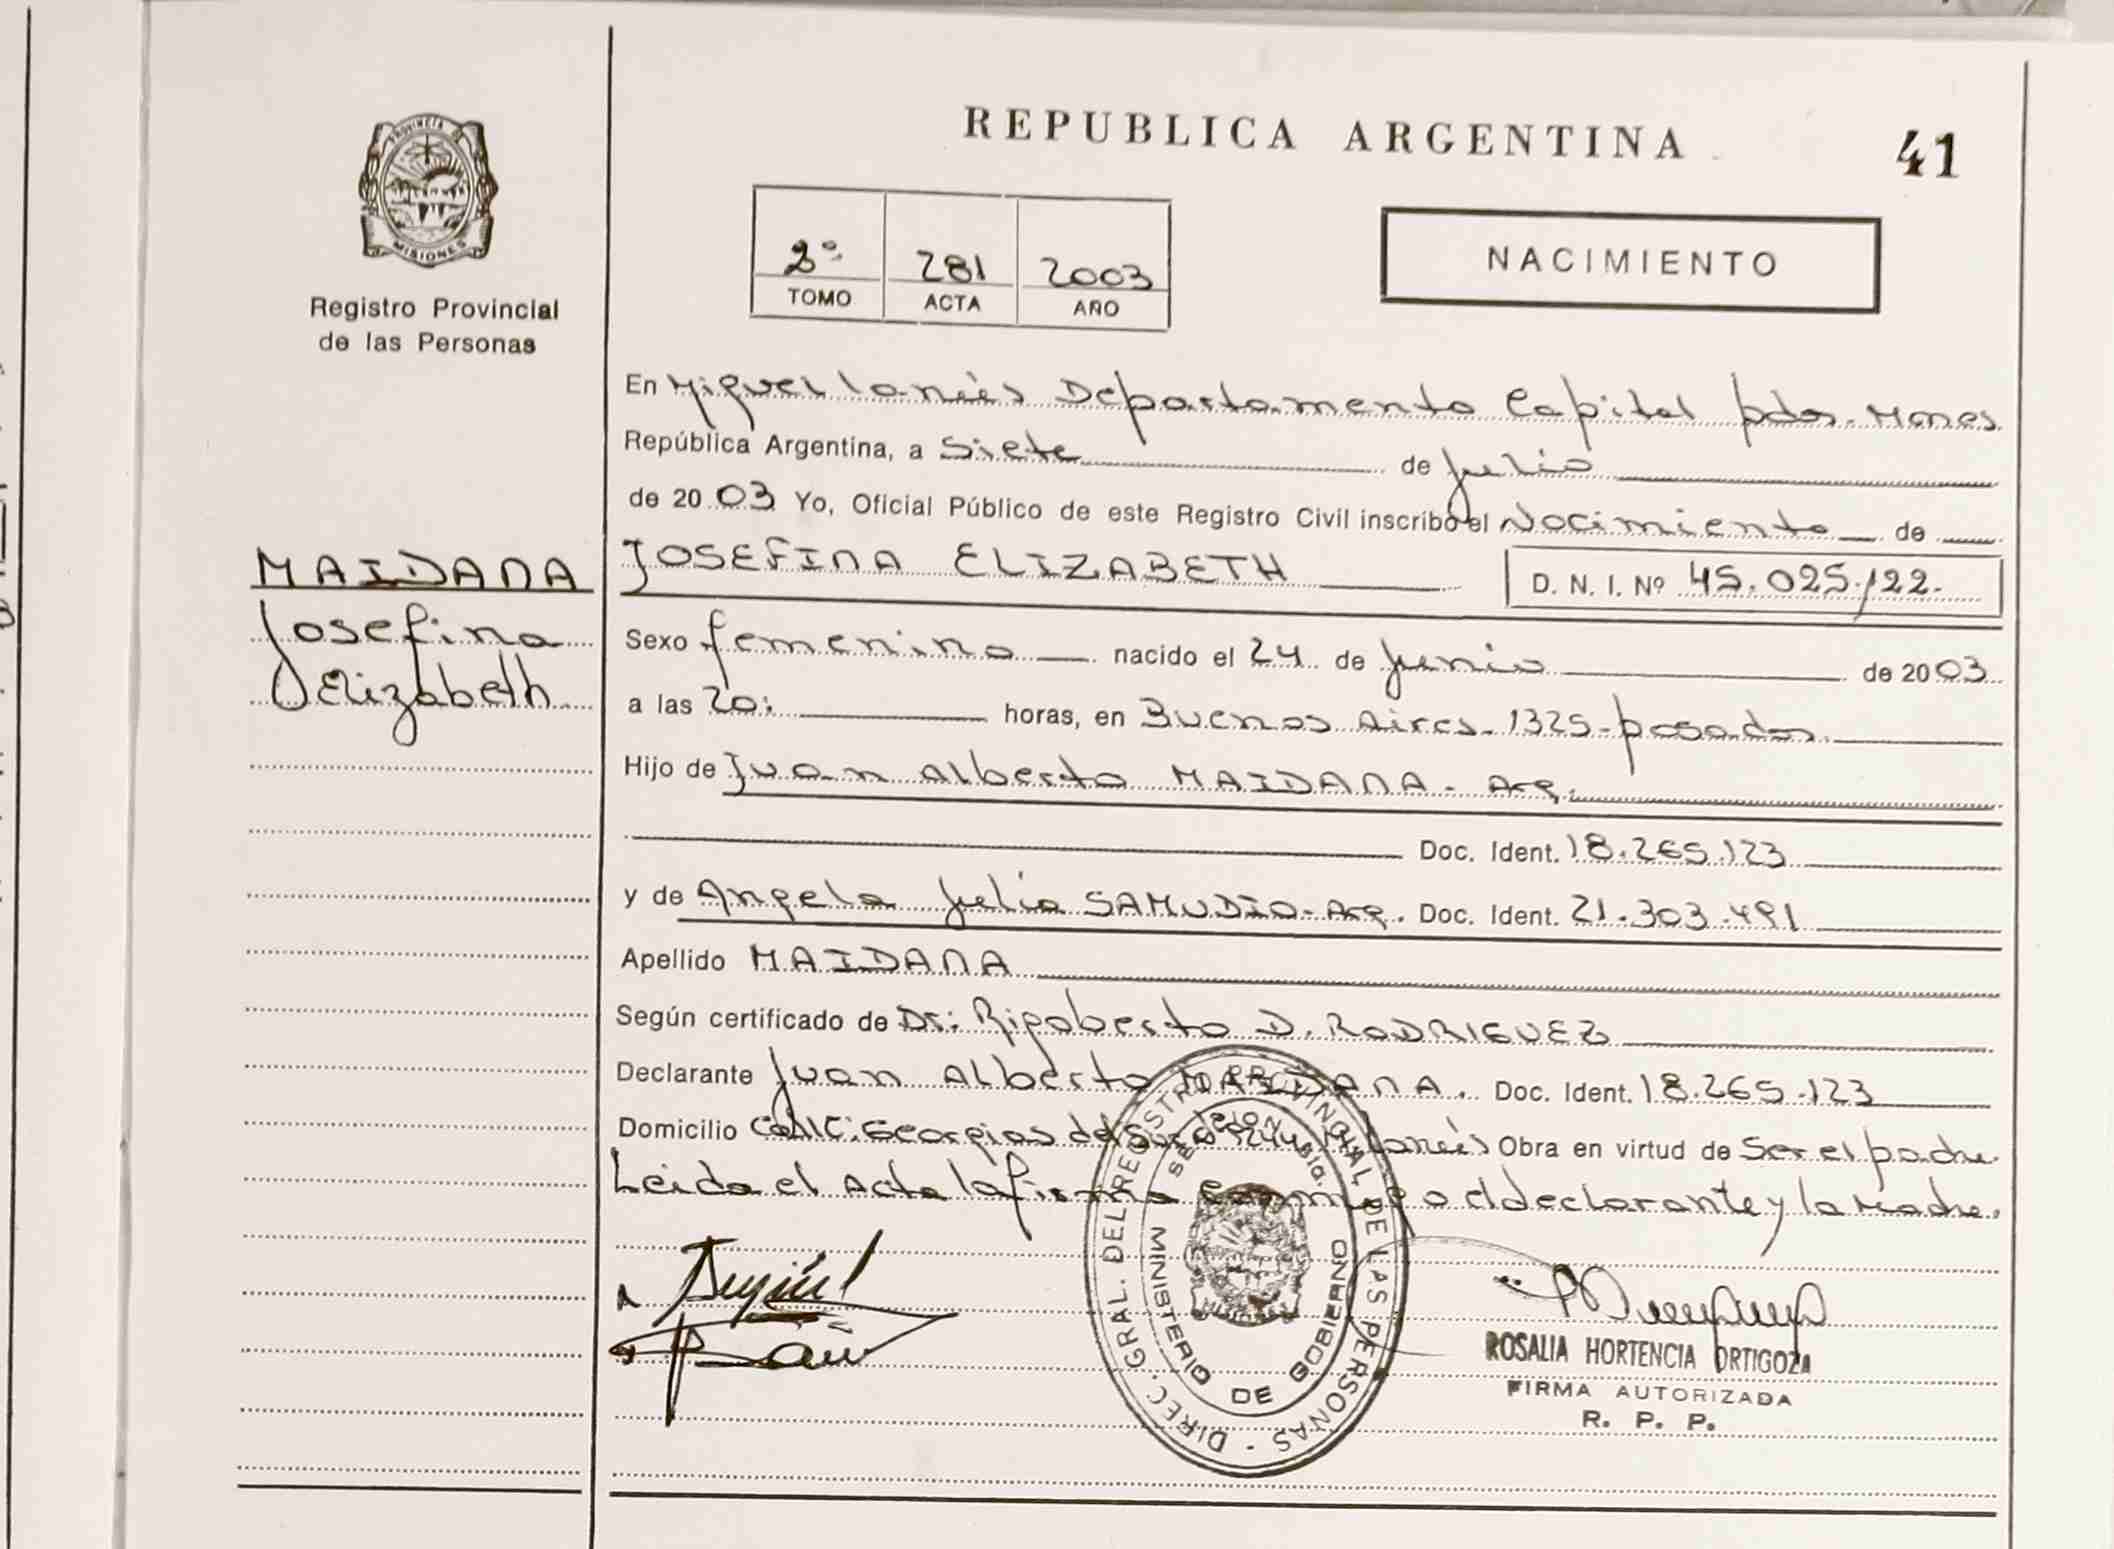 PROVINCIA DE
MISIONES
Registro Provincial
de las Personas
MAIDANA
Josefina
Elizabeth
REPUBLICA ARGENTINA
41
2º 281 2003
TOMO ACTA AÑO
NACIMIENTO
En Miguel Lanús Departamento Capital pdas. Mnes
República Argentina, a Siete de Julio
de 2003 Yo, Oficial Público de este Registro Civil inscribo el Nacimiento de
JOSEFINA ELIZABETH D. N. I. Nº 45.025.122.
Sexo femenino nacido el 24 de Junio de 2003
a las 20: horas, en Buenos Aires. 1325-posadas
Hijo de Juan Alberto MAIDANA. Arg.
Doc. Ident. 18.265.123
y de Angela Julia SAMUDIO-Arg. Doc. Ident. 21.303.491
Apellido MAIDANA
Según certificado de Dr: Rigoberto D. RODRIGUEZ
Declarante Juan Alberto MAIDANA. Doc. Ident. 18.265.123
Domicilio Calle: Georgias del Sur Lanús Obra en virtud de Ser el padre
Leida el Acta la firma conmigo el declarante y la Madre.
DIREC. GRAL. DEL REGISTRO PROVINCIAL DE LAS PERSONAS -
MINISTERIO DE GOBIERNO
ROSALIA HORTENCIA ORTIGOZA
FIRMA AUTORIZADA
R. P. P.